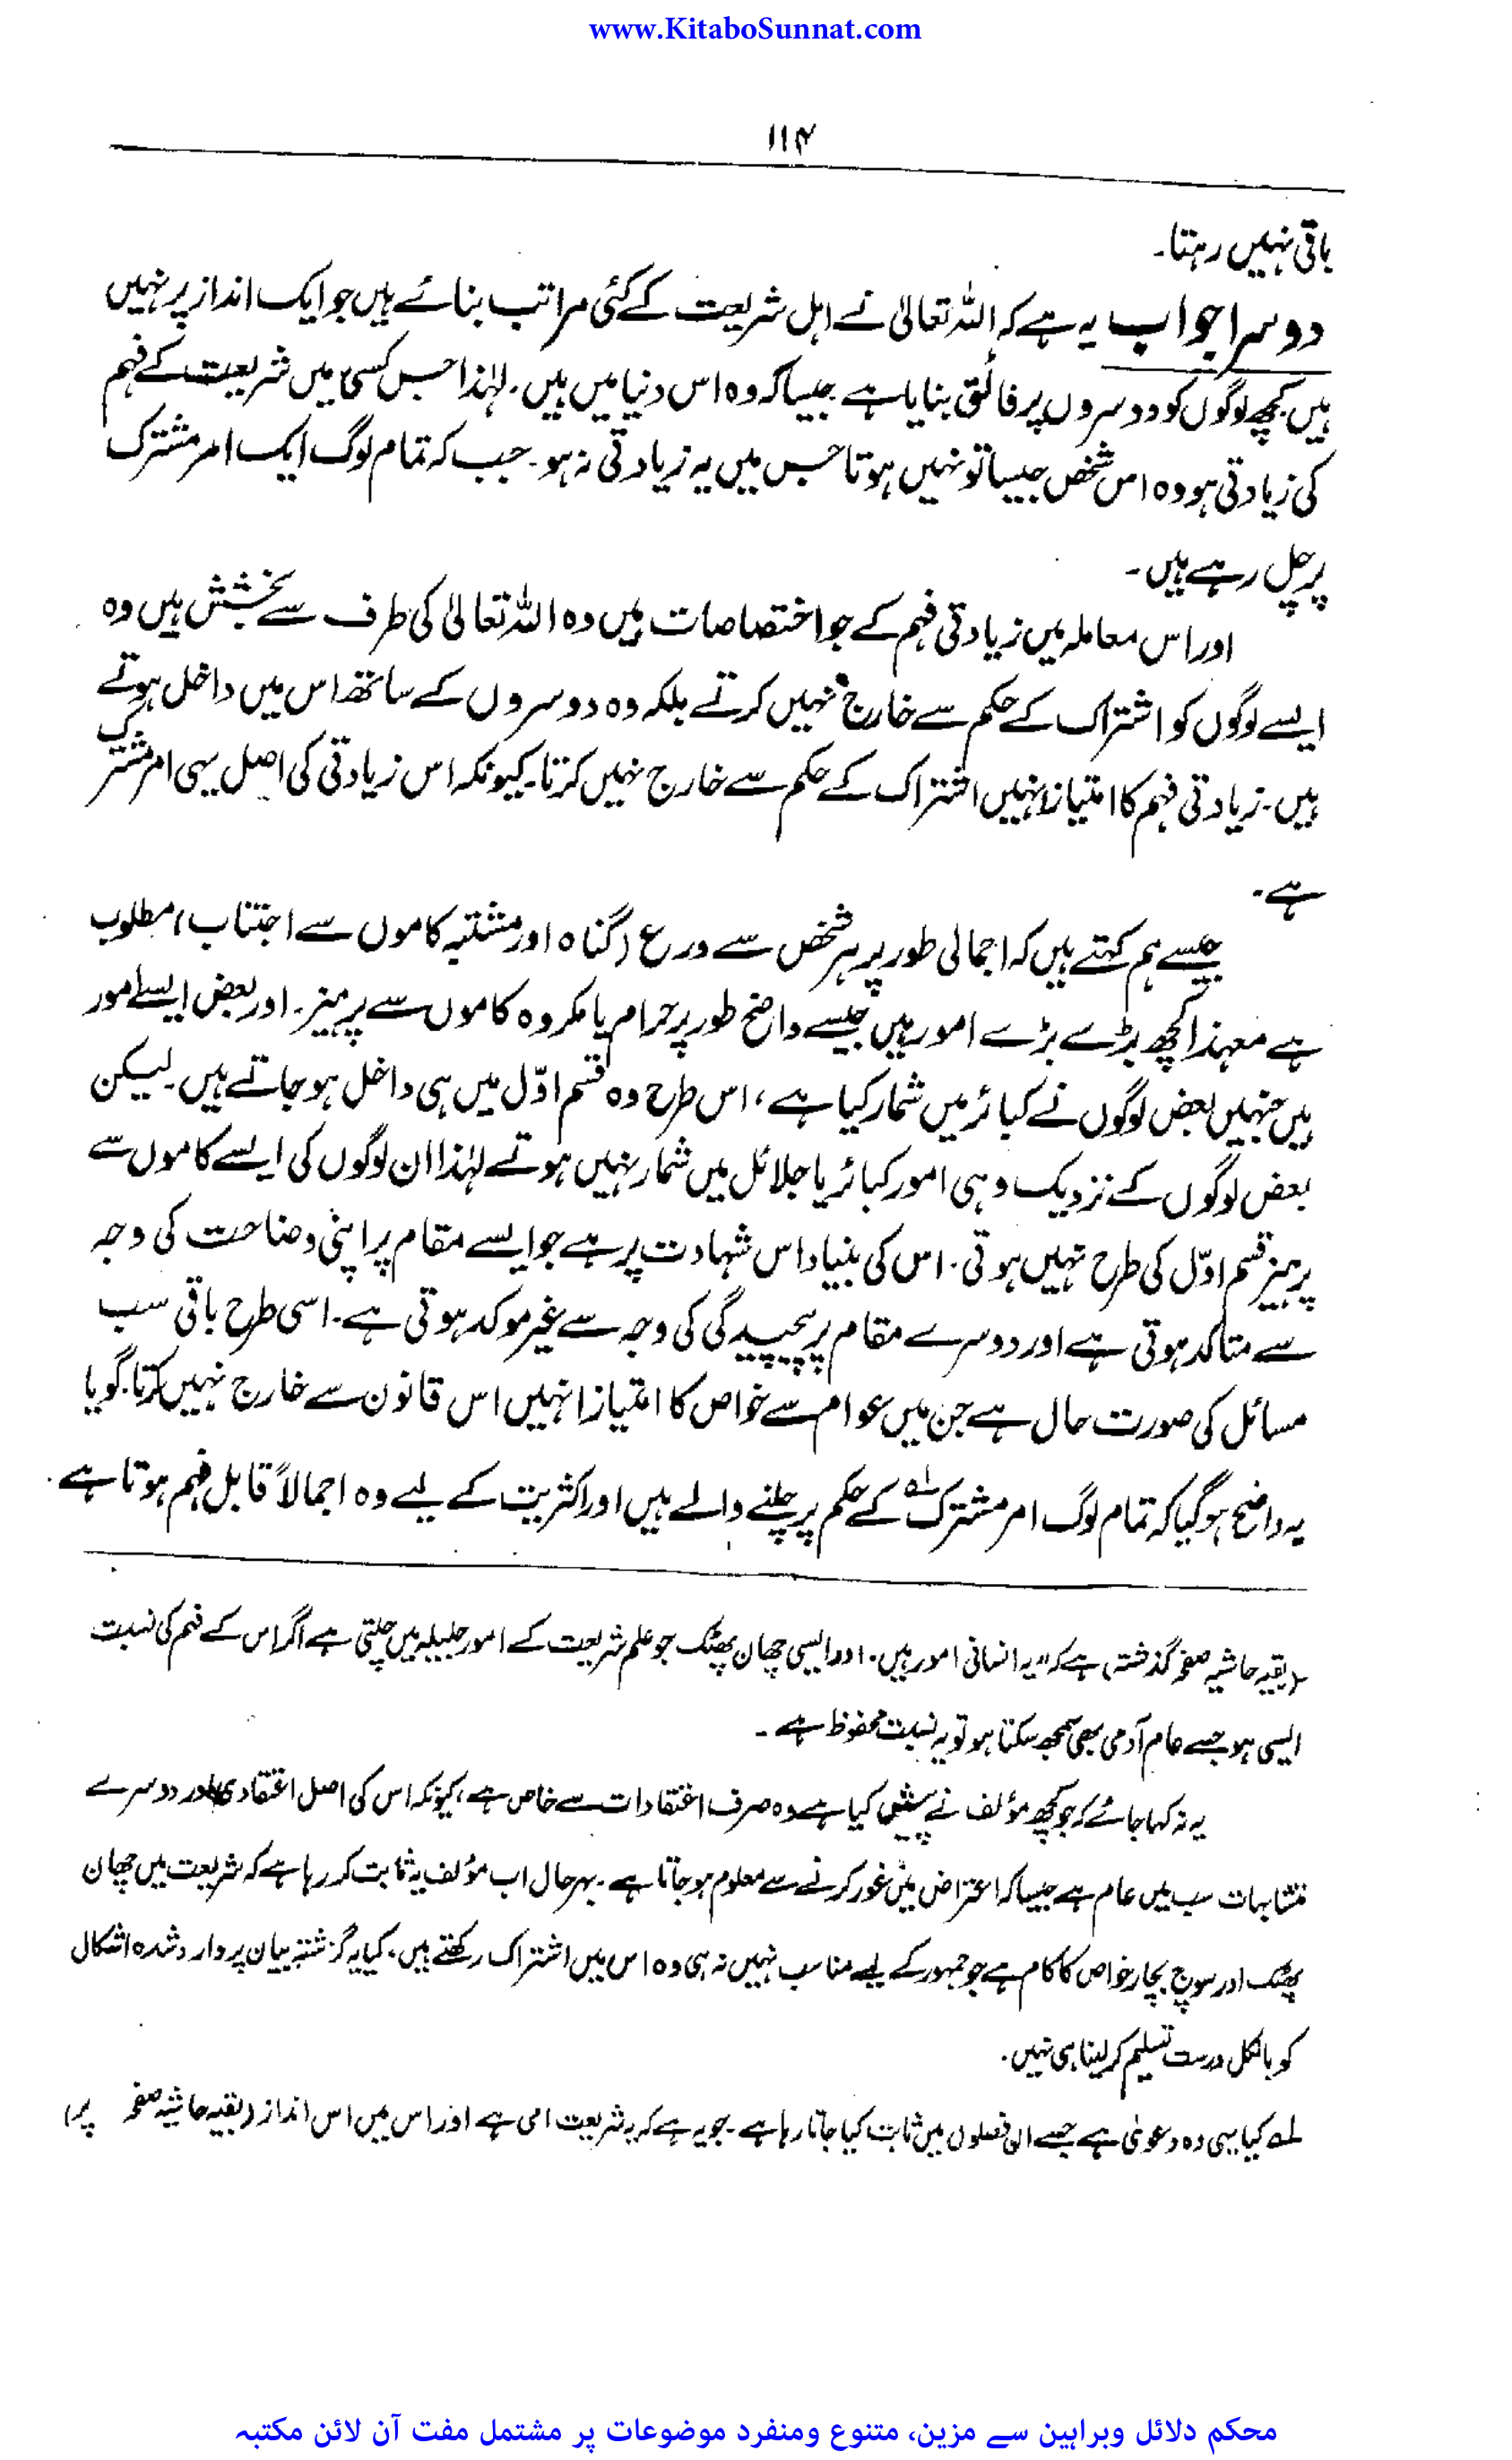 www.KitaboSunnat.com
۱۱۴
باقی نہیں رہتا۔
دوسرا جواب یہ ہے کہ اللہ تعالیٰ نے اہل شریعت کے کئی مراتب بنائے ہیں جو ایک انداز پر نہیں
ہیں۔ کچھ لوگوں کو دوسروں پر فائق بنایا ہے جیسا کہ وہ اس دنیا میں ہیں۔ لہٰذا جس کسی میں شریعت کے فہم
کی زیادتی ہو وہ اس شخص جیسا تو نہیں ہوتا جس میں یہ زیادتی نہ ہو۔ جب کہ تمام لوگ ایک امر مشترک
پر چل رہے ہیں۔
اور اس معاملہ میں زیادتی فہم کے جو اختصاصات ہیں وہ اللہ تعالیٰ کی طرف سے بخشش ہیں وہ
ایسے لوگوں کو اشتراک کے حکم سے خارج نہیں کرتے بلکہ وہ دوسروں کے ساتھ اس میں داخل ہوتے
ہیں۔ زیادتی فہم کا امتیاز انہیں اشتراک کے حکم سے خارج نہیں کرتا۔ کیونکہ اس زیادتی کی اصل یہی امر مشترک
ہے۔
جیسے ہم کہتے ہیں کہ اجمالی طور پر ہر شخص سے ورع (گناہ اور مشتبہ کاموں سے اجتناب) مطلوب
ہے معہذا کچھ بڑے بڑے امور ہیں جیسے واضح طور پر حرام یا مکروہ کاموں سے پرہیز۔ اور بعض ایسے امور
ہیں جنہیں بعض لوگوں نے کبائر میں شمار کیا ہے، اس طرح وہ قسم اوّل میں ہی داخل ہو جاتے ہیں۔ لیکن
بعض لوگوں کے نزدیک وہی امور کبائر یا جلائل میں شمار نہیں ہوتے لہٰذا ان لوگوں کی ایسے کاموں سے
پرہیز قسم اوّل کی طرح نہیں ہوتی۔ اس کی بنیاد اس شہادت پر ہے جو ایسے مقام پر اپنی وضاحت کی وجہ
سے متاکد ہوتی ہے اور دوسرے مقام پر پیچیدگی کی وجہ سے غیر موکد ہوتی ہے۔ اسی طرح باقی سب
مسائل کی صورت حال ہے جن میں عوام سے خواص کا امتیاز انہیں اس قانون سے خارج نہیں کرتا۔ گویا
یہ واضح ہو گیا کہ تمام لوگ امر مشترک لہ کے حکم پر چلنے والے ہیں اور اکثریت کے لیے وہ اجمالاً قابل فہم ہوتا ہے۔
(بقیہ حاشیہ صفحہ گذشتہ) ہے کہ "یہ انسانی امور ہیں۔ اور ایسی چھان پھٹک جو علم شریعت کے امور جلیلہ میں چلتی ہے اگر اس کے فہم کی نسبت
ایسی ہو جسے عام آدمی بھی سمجھ سکتا ہو تو یہ نسبت محفوظ ہے۔
یہ نہ کہا جائے کہ جو کچھ مؤلف نے پیش کیا ہے وہ صرف اعتقادات سے خاص ہے، کیونکہ اس کی اصل اعتقادی اور دوسرے
متشابہات سب میں عام ہے جیسا کہ اعتراض میں غور کرنے سے معلوم ہو جاتا ہے۔ بہرحال اب مؤلف یہ ثابت کر رہا ہے کہ شریعت میں چھان
پھٹک اور سوچ بچار خواص کا کام ہے جو جمہور کے لیے مناسب نہیں نہ ہی وہ اس میں اشتراک رکھتے ہیں۔ کیا یہ گزشتہ بیان پر وارد شدہ اشکال
کو بالکل درست تسلیم کر لینا ہی نہیں۔
لہ کیا یہی وہ دعویٰ ہے جسے ان فصلوں میں ثابت کیا جاتا رہا ہے۔ جو یہ ہے کہ یہ شریعت امی ہے اور اس میں اس انداز (بقیہ حاشیہ صفحہ پر)
محکم دلائل وبراہین سے مزین، متنوع ومنفرد موضوعات پر مشتمل مفت آن لائن مکتبہ